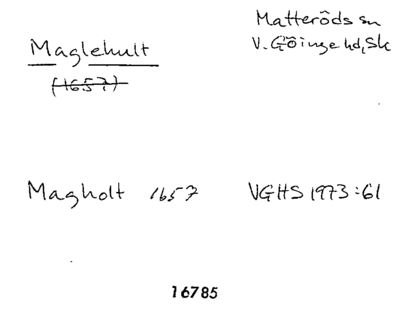 Maglehult
(1657)
Matteröds sn
V. Göinge hd, Sk
Magholt 1657 VGHS 1973:61
16785